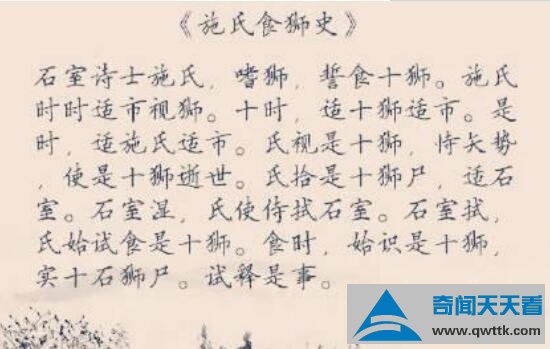 《施氏食狮史》
石室诗士施氏，嗜狮，誓食十狮。施氏
时时适市视狮。十时，适十狮适市。是
时，适施氏适市。氏视是十狮，恃矢势
，使是十狮逝世。氏拾是十狮尸，适石
室。石室湿，氏使侍拭石室。石室拭，
氏始试食是十狮。食时，始识是十狮，
实十石狮尸。试释是事。
奇闻天天看
www.qwttk.com